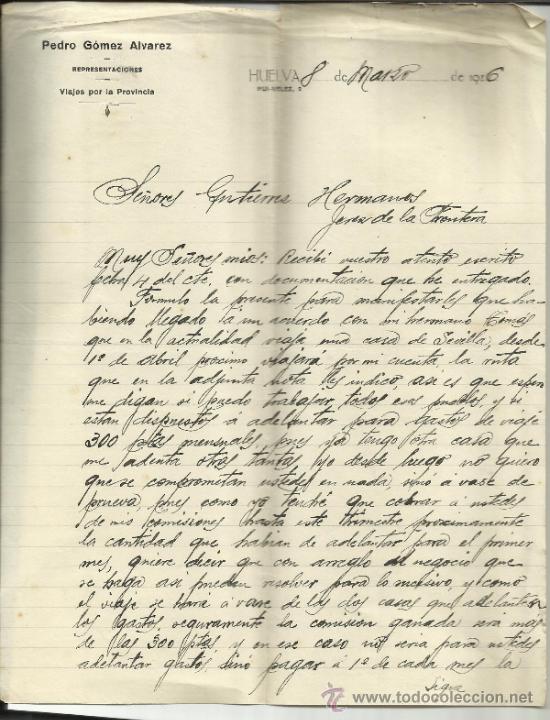 Pedro Gómez Alvarez
REPRESENTACIONES
Viajes por la Provincia
HUELVA 8 de Marzo de 1926
Señores Gutiérres Hermanos
Jerez de la Frontera
Muy Señores mios: Recibí vuestro atento escrito
fecha 4 del cte, con documentación que he entregado.
Formulo la presente para manifestarles que ha-
biendo llegado á un acuerdo con mi hermano Tomás
que en la actualidad viaja una casa de Sevilla, desde
1º de Abril proximo viajará por mi cuenta, la ruta
que en la adjunta nota les indico, asi es que espero
me digan si puedo trabajar todos esos pueblos y si
estan dispuestos á adelantar para gastos de viaje
300 ptas mensuales, pues ya tengo otra casa que
me adenta otras tantas, yo desde luego no quiero
que se comprometan ustedes en nada, sino á vase de
prueva, pues como yo tendré que cobrar á ustedes
de mis comisiones hasta este trimestre proximamente
la cantidad que habian de adelantar para el primer
mes, quiere dicir que con arreglo al negocio que
se haga asi pueden resolver para lo sucesivo, y como
el viaje se hará á vase de las dos casas que adelanten
los gastos, seguramente la comisión ganada sera mas
de las 300 ptas y en ese caso no seria para ustedes
adelantar gastos, sino pagar á 1º de cada mes la
Sigue
todocoleccion
www.todocoleccion.net